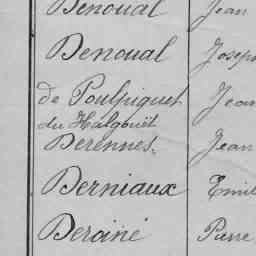 Denoual Jean
Denoual Josep
de Poulpiquet Jean
du Halgouët
Derennes Jean
Derniaux Emil
Deroiné Pierre